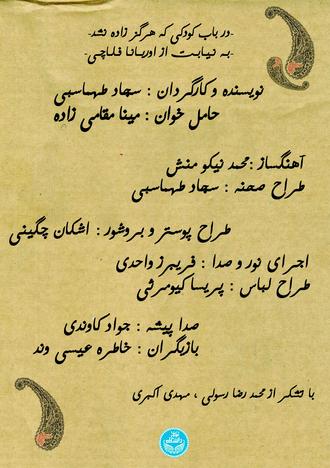 -در باب کودکی که هرگز زاده نشد-
-به نیابت از اوریانا فلاچی-
نویسنده و کارگردان : سجاد طهماسبی
حامل خوان : مینا مقامی زاده
آهنگساز : محمد نیکو منش
طراح صحنه : سجاد طهماسبی
طراح پوستر و بروشور : اشکان چگینی
اجرای نور و صدا : فریبرز واحدی
طراح لباس : پریسا کیومرثی
صدا پیشه : جواد کاوندی
بازیگران : خاطره عیسی وند
با تشکر از محمد رضا رسولی ، مهدی اکبری